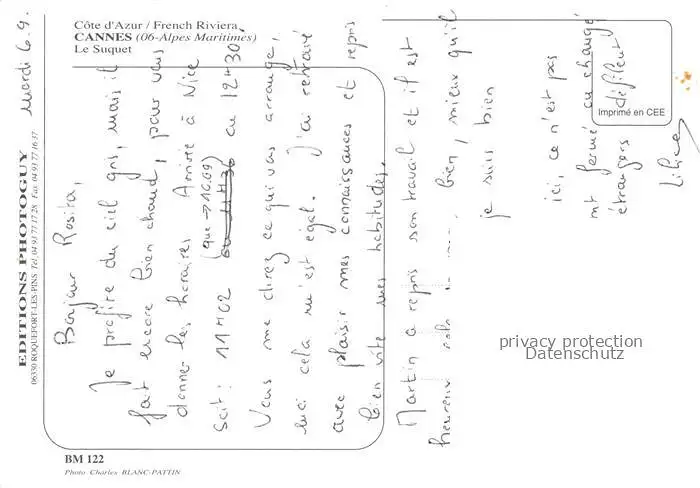 Côte d'Azur / French Riviera
CANNES (06-Alpes Maritimes)
Le Suquet
EDITIONS PHOTOGUY
06330 ROQUEFORT-LES-PINS Tel. 04 93 77 17 28 Fax 04 93 77 16 37
mardi 6.9.
Bonjour Rosita,
Je profite du ciel gris, mais il
fait encore bien chaud, pour vous
donner les horaires Arrivée à Nice
(que → 16.09)
soit : 11H02 ou 11H36 ou 12H30.
Vous me direz ce qui vous arrange,
moi cela m'est égal. J'ai retrouvé
avec plaisir mes connaissances et repris
bien vite mes habitudes.
Martin a repris son travail et il est
heureux bien, mieux qu'il
je suis bien
ici, ce n'est pas
mt fermé ou changé
étrangers défilent
Imprimé en CEE
privacy protection
Datenschutz
BM 122
Photo Charles BLANC-PATTIN